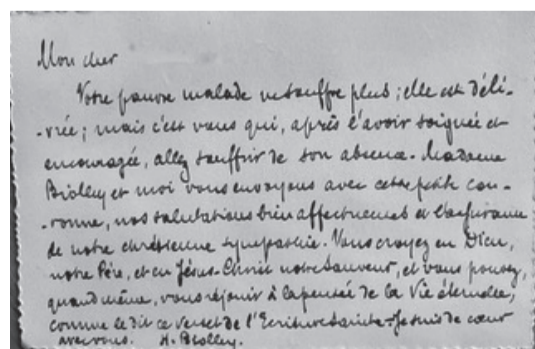 Mon cher
Votre pauvre malade ne souffre plus ; elle est déli-
-vrée ; mais c'est vous qui, après l'avoir soignée et
encouragée, allez souffrir de son absence. Madame
Biolley et moi vous envoyons avec cette petite cou-
-ronne, nos salutations bien affectueuses et l'assurance
de notre chrétienne sympathie. Vous croyez en Dieu,
notre Père, et en Jésus-Christ notre Sauveur, et vous pouvez,
quand même, vous réjouir à la pensée de la Vie éternelle,
comme le dit ce verset de l'Ecriture Sainte. Je suis de cœur
avec vous. H. Biolley.